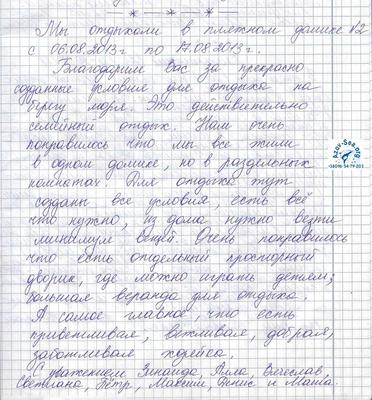 Мы отдыхали в пляжном домике №2
с 06.08.2013г по 17.08.2013г.
Благодарим Вас за прекрасно
созданные условия для отдыха на
берегу моря. Это действительно
семейный отдых. Нам очень
понравилось что мы все жили
в одном домике, но в раздельных
комнатах. Для отдыха тут
созданы все условия, есть всё
что нужно, из дома нужно везти
минимум вещей. Очень понравилось
что есть отдельный просторный
дворик, где можно играть детям;
большая веранда для отдыха.
А самое главное, что есть
приветливая, вежливая, добрая,
заботливая хозяйка.
С уважением Зинаида, Алла, Вячеслав,
Светлана, Пётр, Максим, Денис и Маша.
Azov-Sea.org